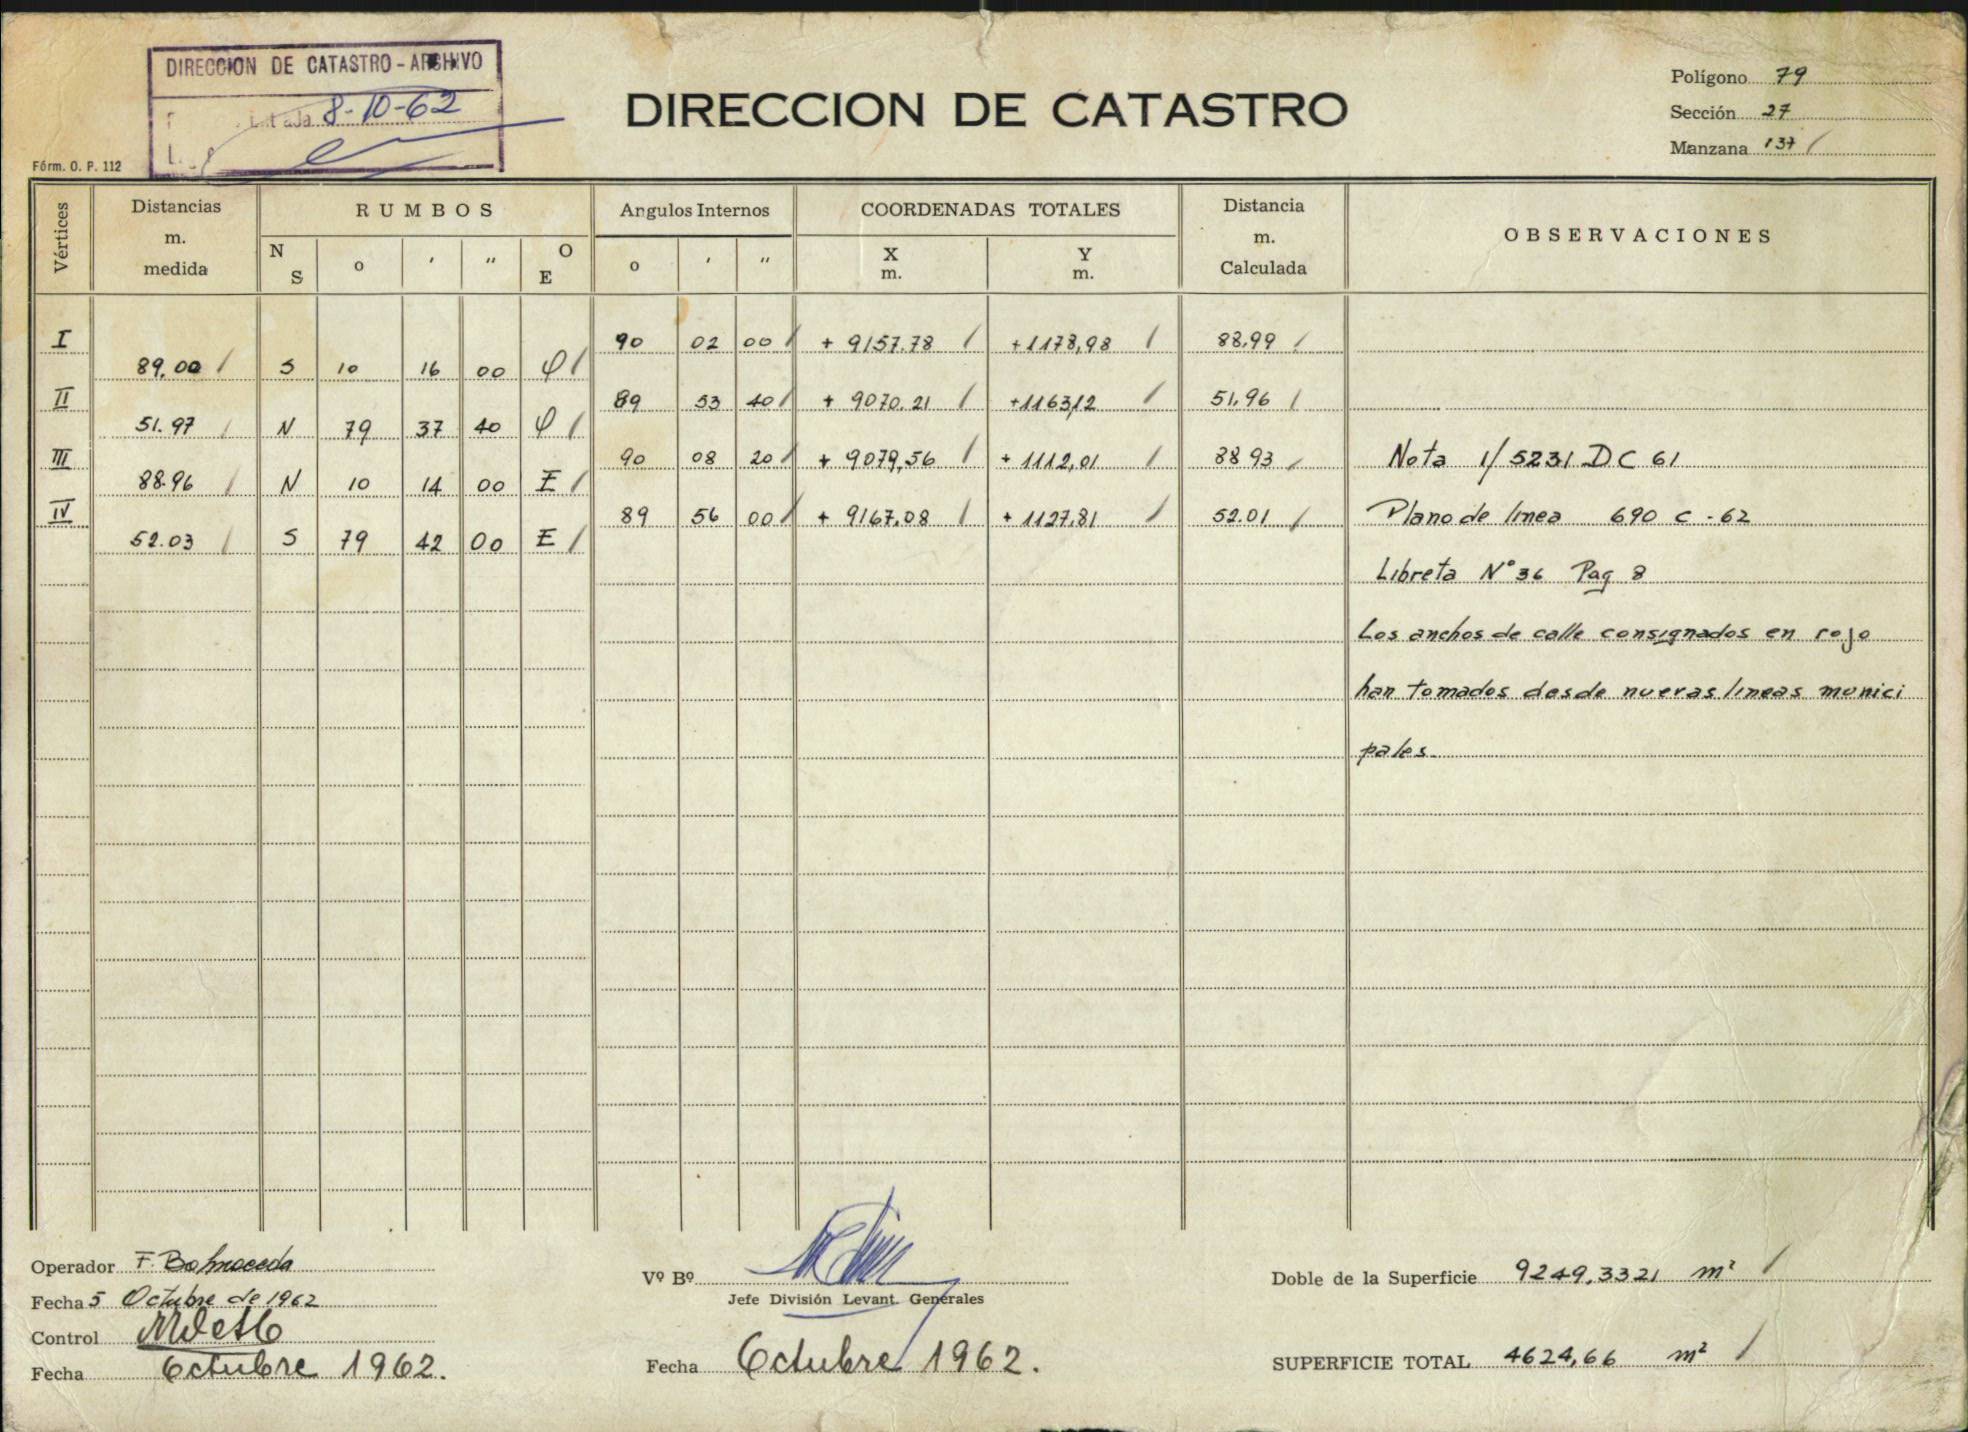 DIRECCION DE CATASTRO - ARCHIVO
8-10-62
DIRECCION DE CATASTRO
Polígono 79
Sección 27
Manzana 137 /
Fórm. O. P. 112
Vértices
Distancias m. medida
RUMBOS
N S o ′ ″ O E
Angulos Internos
o ′ ″
COORDENADAS TOTALES
X m. Y m.
Distancia m. Calculada
OBSERVACIONES
I 90 02 00 / + 9157.78 / +1178,98 / 88,99 /
89,00 / S 10 16 00 φ /
II 89 53 40 / + 9070.21 / +1163,12 / 51.96 /
51.97 / N 79 37 40 φ /
III 90 08 20 / + 9079,56 / + 1112,01 / 88 93 / Nota 1/5231 DC 61
88.96 / N 10 14 00 E /
IV 89 56 00 / + 9167,08 / + 1127.81 / 52.01 / Plano de línea 690 c - 62
52.03 / S 79 42 00 E /
Libreta N° 36 Pag 8
Los anchos de calle consignados en rojo
han tomados desde nuevas líneas munici
pales.
Operador F. Balmaceda
Fecha 5 Octubre de 1962
Control
Fecha Octubre 1962.
Vº Bº
Jefe División Levant. Generales
Fecha Octubre 1962.
Doble de la Superficie 9249,3321 m² /
SUPERFICIE TOTAL 4624,66 m² /